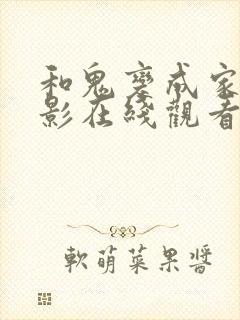 和鬼變成家
影在綫觀看
軟萌菜果醬